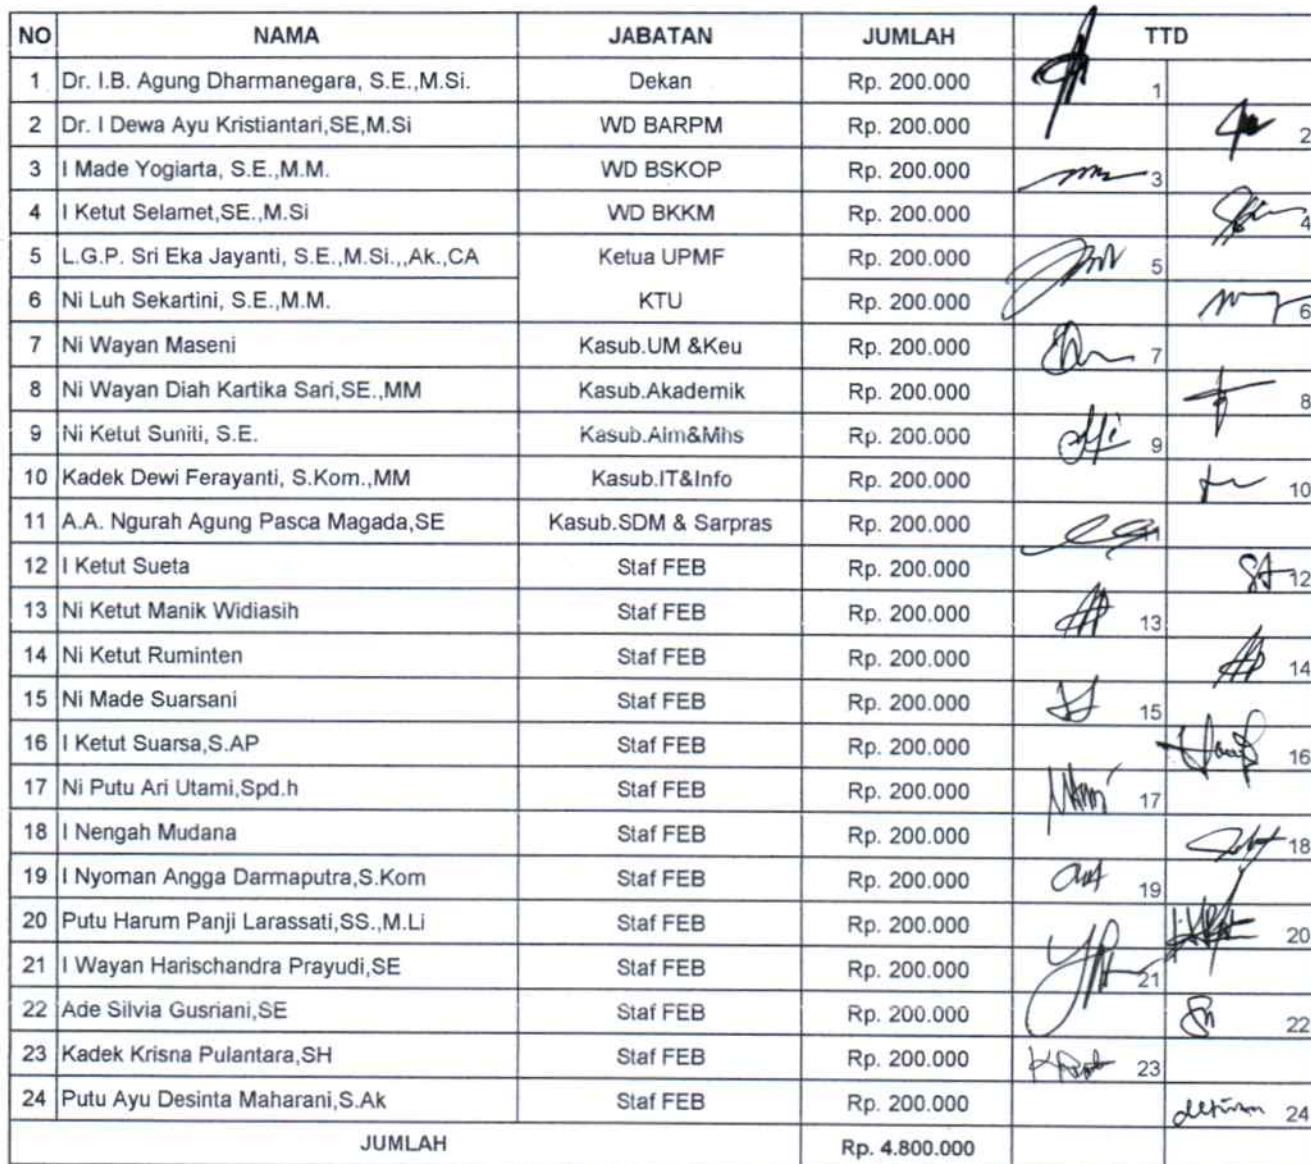 NO NAMA JABATAN JUMLAH TTD
1 Dr. I.B. Agung Dharmanegara, S.E.,M.Si. Dekan Rp. 200.000 1
2 Dr. I Dewa Ayu Kristiantari,SE,M.Si WD BARPM Rp. 200.000 2
3 I Made Yogiarta, S.E.,M.M. WD BSKOP Rp. 200.000 3
4 I Ketut Selamet,SE.,M.Si WD BKKM Rp. 200.000 4
5 L.G.P. Sri Eka Jayanti, S.E.,M.Si.,,Ak.,CA Ketua UPMF Rp. 200.000 5
6 Ni Luh Sekartini, S.E.,M.M. KTU Rp. 200.000 6
7 Ni Wayan Maseni Kasub.UM &Keu Rp. 200.000 7
8 Ni Wayan Diah Kartika Sari,SE.,MM Kasub.Akademik Rp. 200.000 8
9 Ni Ketut Suniti, S.E. Kasub.Alm&Mhs Rp. 200.000 9
10 Kadek Dewi Ferayanti, S.Kom.,MM Kasub.IT&Info Rp. 200.000 10
11 A.A. Ngurah Agung Pasca Magada,SE Kasub.SDM & Sarpras Rp. 200.000 11
12 I Ketut Sueta Staf FEB Rp. 200.000 12
13 Ni Ketut Manik Widiasih Staf FEB Rp. 200.000 13
14 Ni Ketut Ruminten Staf FEB Rp. 200.000 14
15 Ni Made Suarsani Staf FEB Rp. 200.000 15
16 I Ketut Suarsa,S.AP Staf FEB Rp. 200.000 16
17 Ni Putu Ari Utami,Spd.h Staf FEB Rp. 200.000 17
18 I Nengah Mudana Staf FEB Rp. 200.000 18
19 I Nyoman Angga Darmaputra,S.Kom Staf FEB Rp. 200.000 19
20 Putu Harum Panji Larassati,SS.,M.Li Staf FEB Rp. 200.000 20
21 I Wayan Harischandra Prayudi,SE Staf FEB Rp. 200.000 21
22 Ade Silvia Gusriani,SE Staf FEB Rp. 200.000 22
23 Kadek Krisna Pulantara,SH Staf FEB Rp. 200.000 23
24 Putu Ayu Desinta Maharani,S.Ak Staf FEB Rp. 200.000 24
JUMLAH Rp. 4.800.000